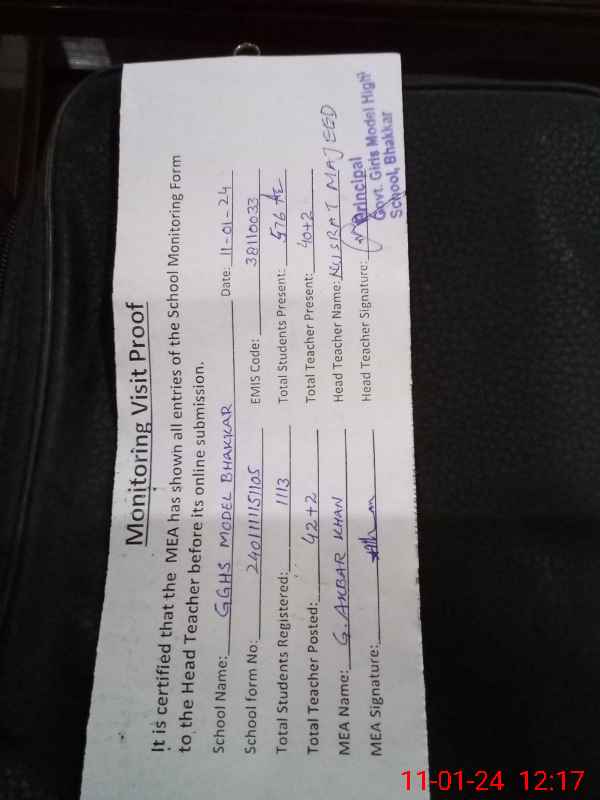 Monitoring Visit Proof
It is certified that the MEA has shown all entries of the School Monitoring Form
to the Head Teacher before its online submission.
School Name: GGHS MODEL BHAKKAR Date: 11-01-24
School form No: 2401111151105 EMIS Code: 38110033
Total Students Registered: 1113 Total Students Present: 576
Total Teacher Posted: 42+2 Total Teacher Present: 40+2
MEA Name: G. AKBAR KHAN Head Teacher Name: NUSRAT MAJEED
MEA Signature: Head Teacher Signature:
Principal
Govt. Girls Model High
School, Bhakkar
11-01-24 12:17